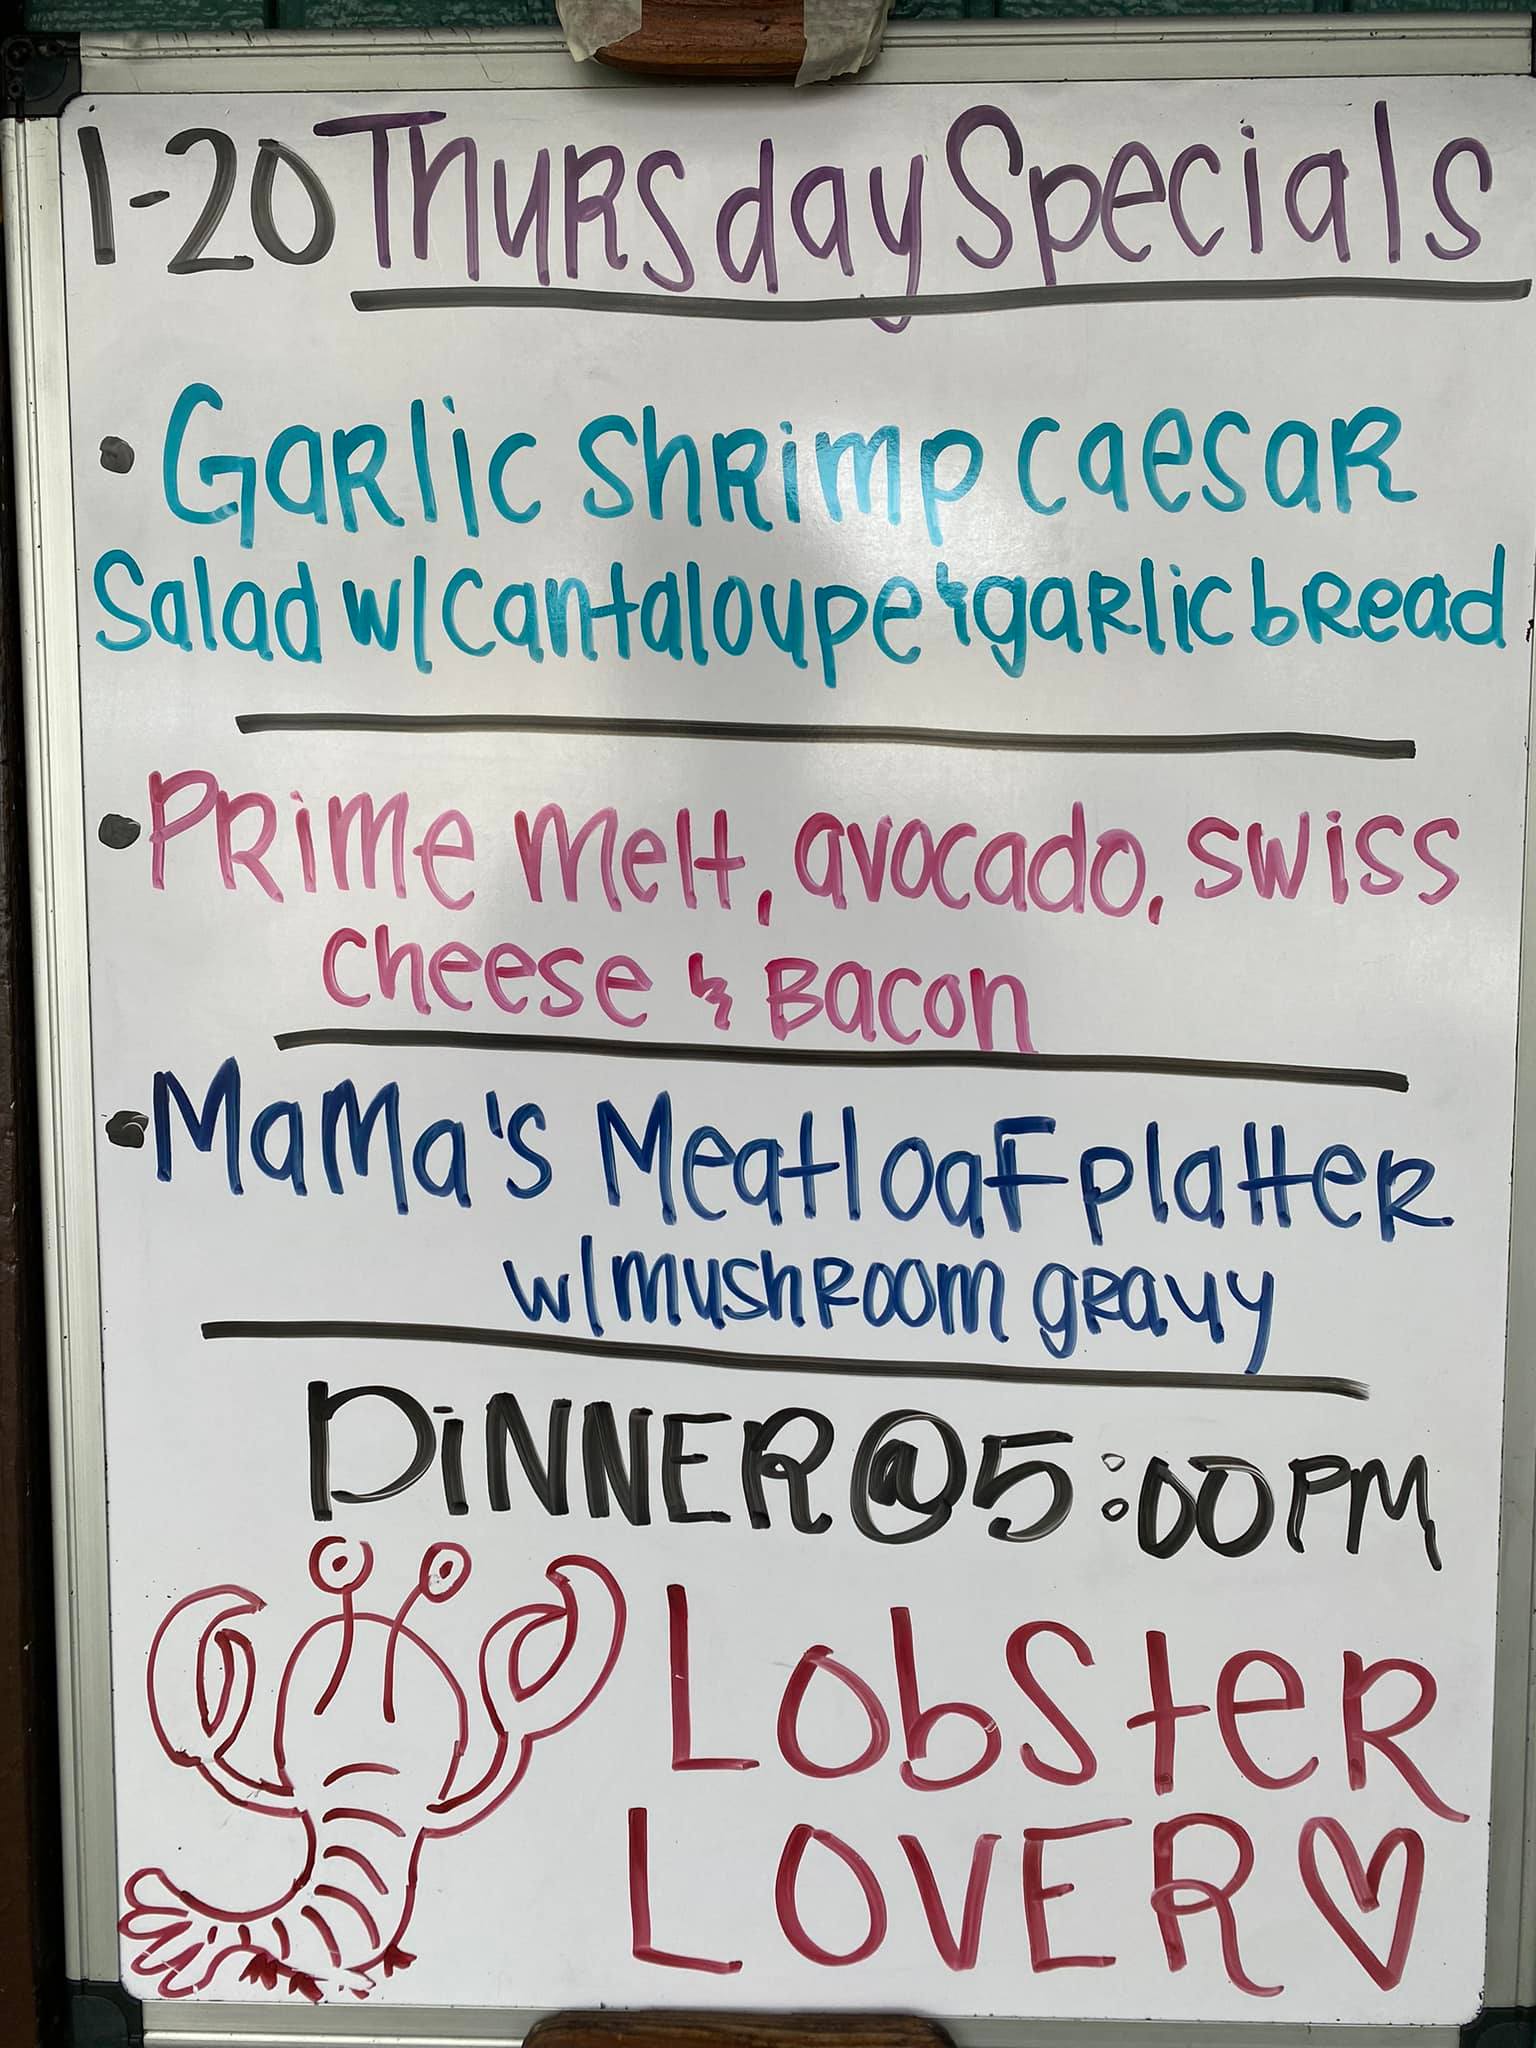 1-20 Thursday Specials
• Garlic Shrimp Caesar
Salad w/ Cantaloupe & garlic bread
• Prime Melt, avocado, swiss
cheese & Bacon
• Mama's Meatloaf platter
w/ mushroom gravy
DiNNER @ 5:00PM
LobSteR
LOVER ♡